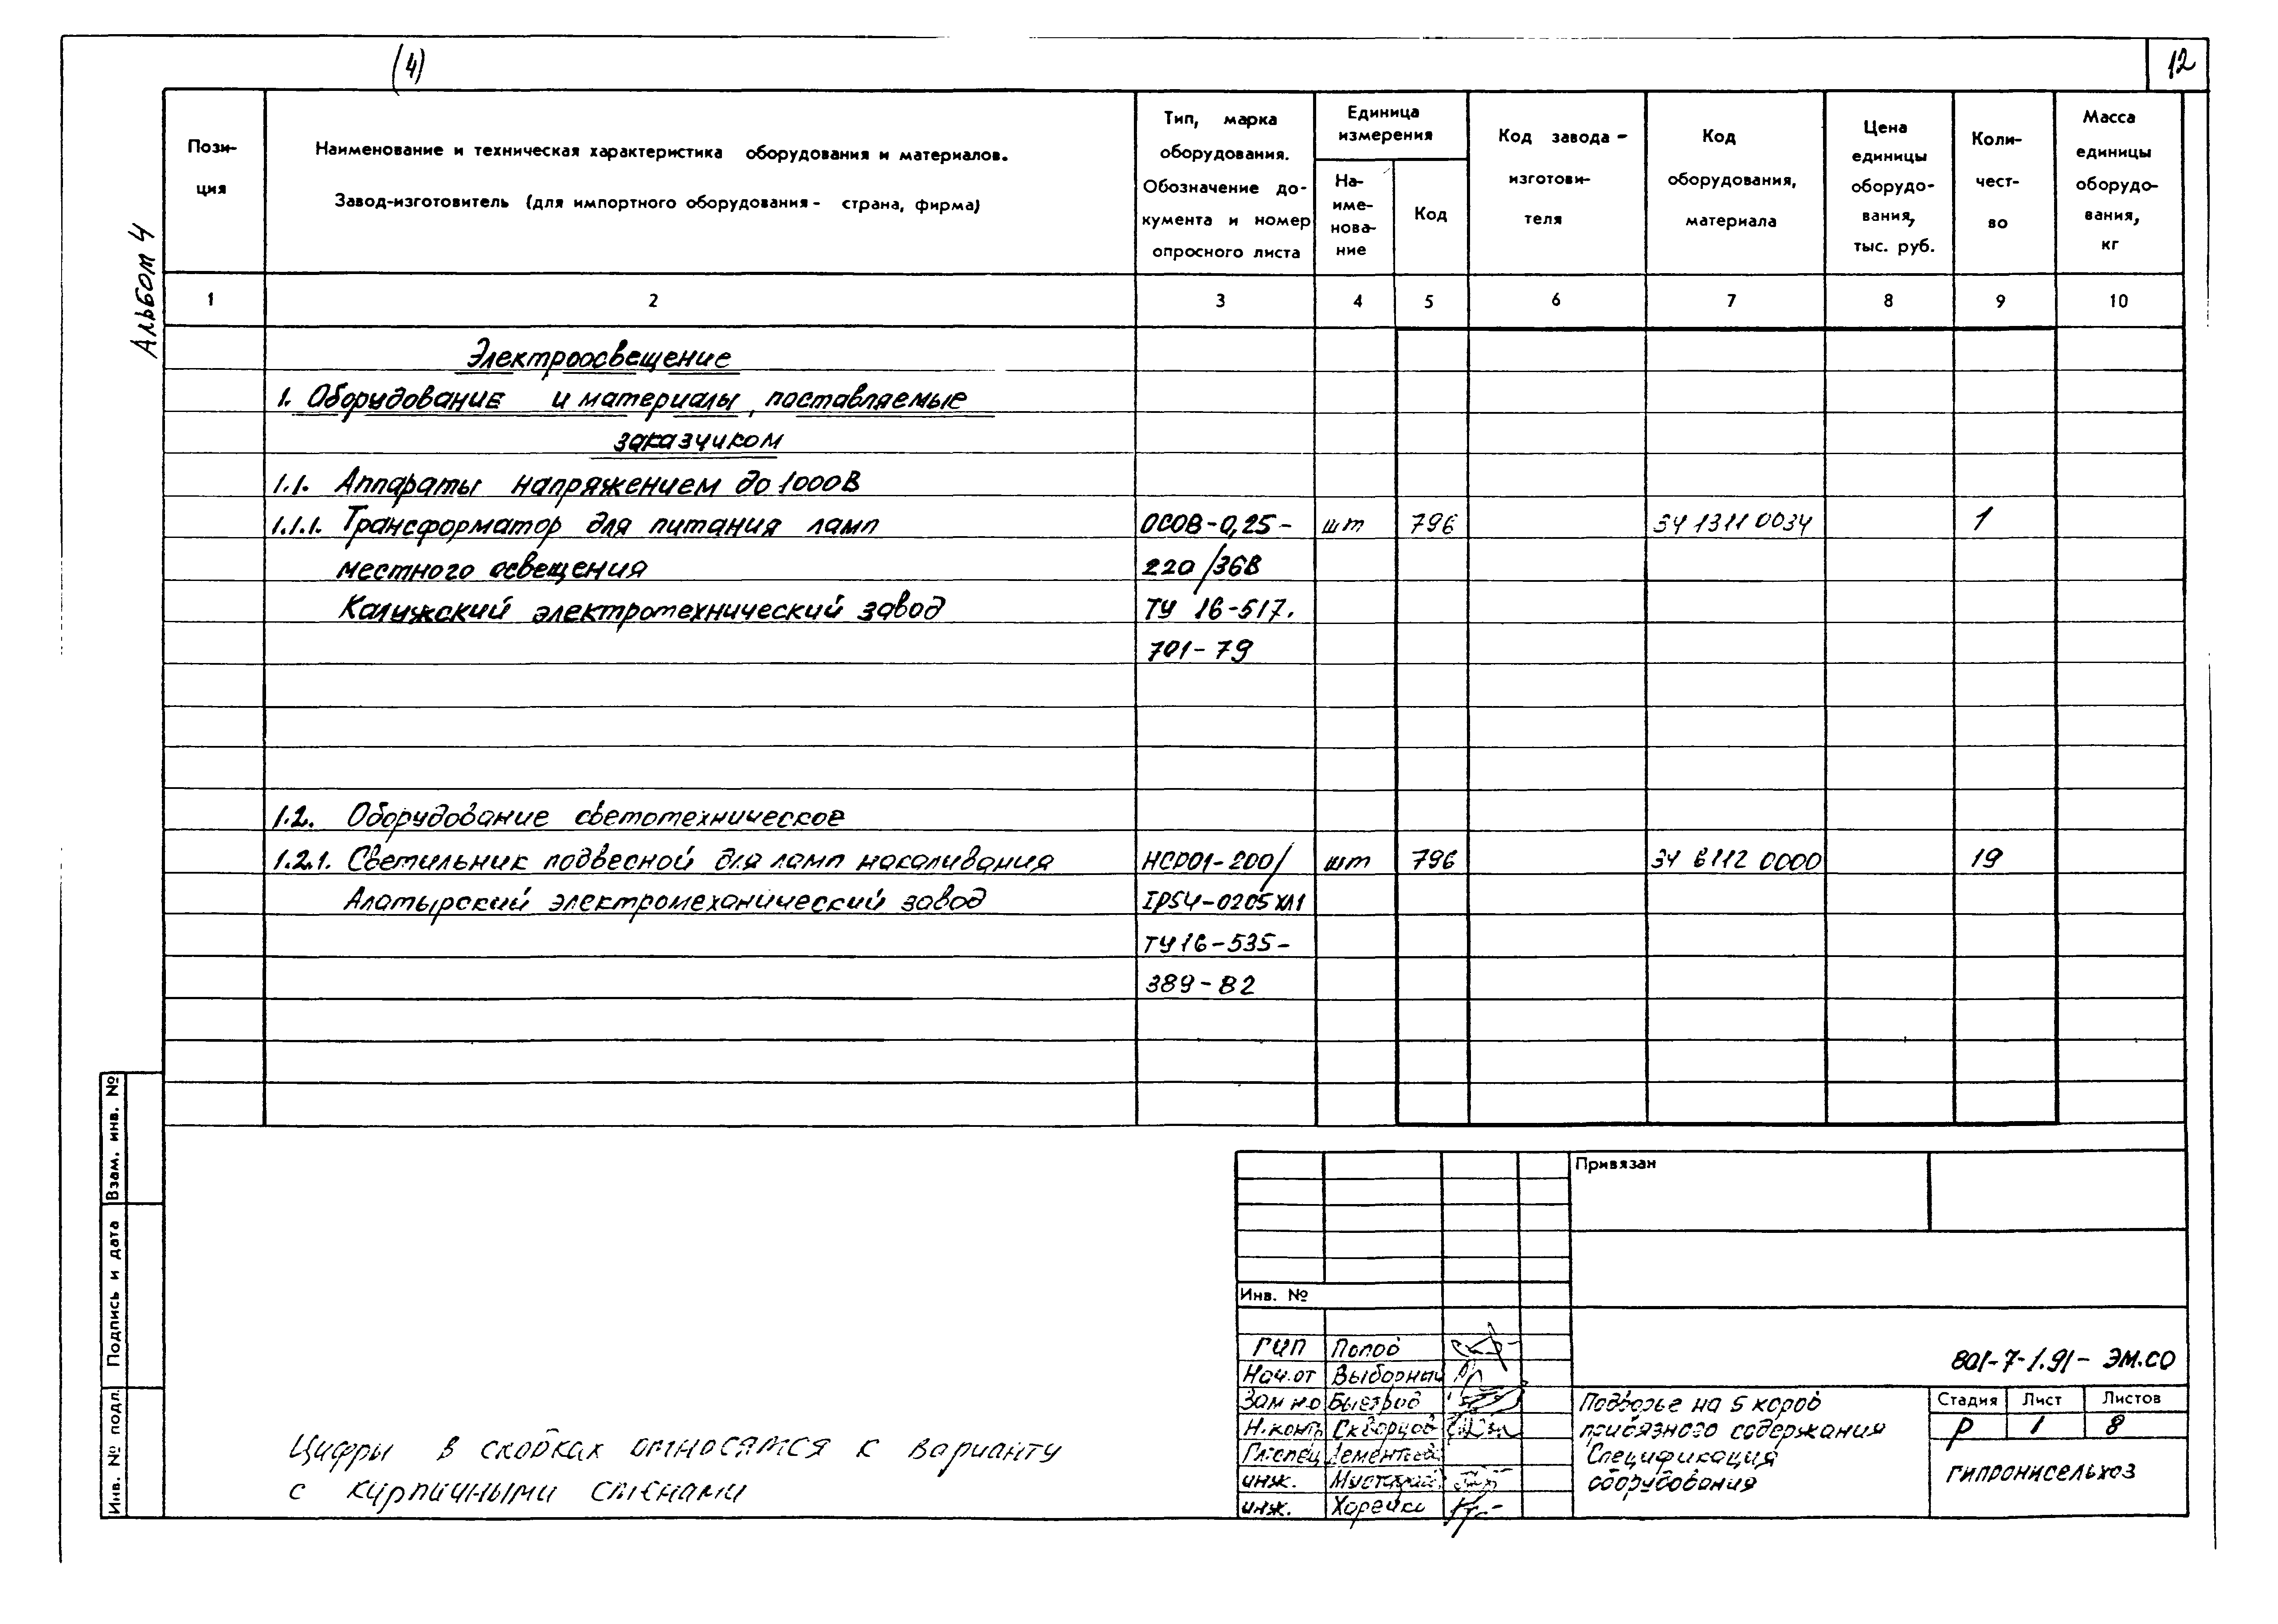 (4)
12
Альбом 4
Пози-
ция
Наименование и техническая характеристика оборудования и материалов.
Завод-изготовитель (для импортного оборудования - страна, фирма)
Тип, марка
оборудования.
Обозначение до-
кумента и номер
опросного листа
Единица
измерения
На-
име-
нова-
ние
Код
Код завода -
изготови-
теля
Код
оборудования,
материала
Цена
единицы
оборудо-
вания,
тыс. руб.
Коли-
чест-
во
Масса
единицы
оборудо-
вания,
кг
1 2 3 4 5 6 7 8 9 10
Электроосвещение
1. Оборудование и материалы, поставляемые
заказчиком
1.1. Аппараты напряжением до 1000В
1.1.1. Трансформатор для питания ламп ОСОВ-0,25- шт 796 34 1311 0034 1
местного освещения 220/36В
Калужский электротехнический завод ТУ 16-517.
701-79
1.2. Оборудование светотехническое
1.2.1. Светильник подвесной для ламп накаливания НСП01-200/ шт 796 34 6112 0000 19
Алатырский электромеханический завод IP54-0205ХЛ1
ТУ16-535-
389-82
Взам. инв. №
Подпись и дата
Инв. № подл.
Цифры в скобках относятся к варианту
с кирпичными стенами
Привязан
Инв. №
ГИП Попов
Нач.от Выборный
Зам н.о Быстров
Н.конт. Скворцов
Гл.спец Дементьев
инж.
инж. Хорейко
801-7-1.91- ЭМ.СО
Подворье на 5 коров
привязного содержания
Спецификация
оборудования
Стадия Лист Листов
Р 1 8
ГИПРОНИСЕЛЬХОЗ